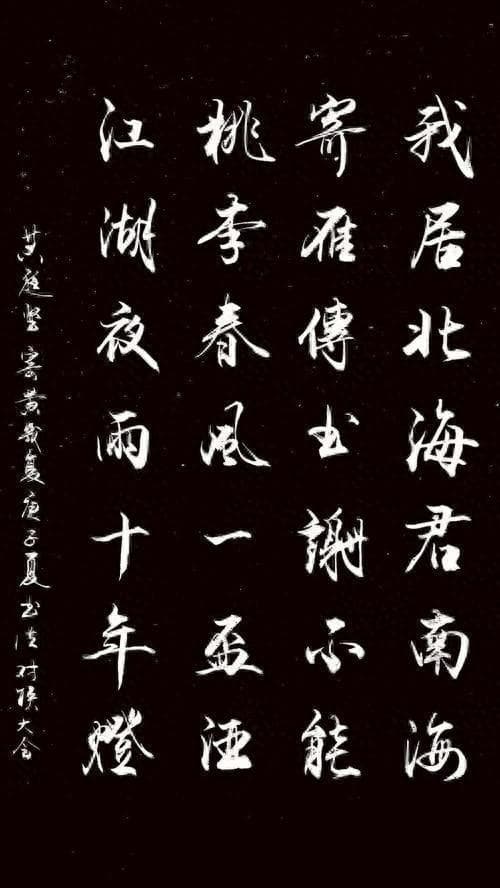 我居北海君南海
寄雁傳书謝不能
桃李春风一盃酒
江湖夜雨十年燈
黄庭坚寄黄幾复庚子夏书法对联大会